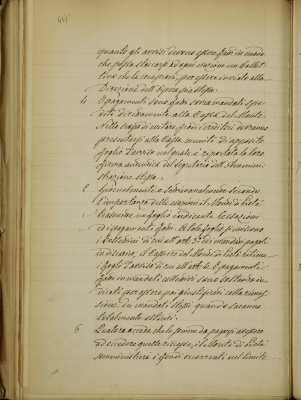 quanto gli avvisi devono essere fatti in modo
che possa staccarsi ad ogni esazione un bollet-
tino che la comprovi, per essere inviato alla
Direzione dell'Opera pia stessa.
I pagamenti sono fatti sovra mandati spe-
diti direttamente alla Cassa del Monte
Nello scopo di evitare frodi i creditori dovranno
presentarsi alla Cassa muniti di apposito
foglio d'avviso nel quale è riportata la loro
firma autenticata del Segretario dell'Ammini-
strazione stessa.
Giornalmente o Settimanalmente secondo
l'importanza delle esazioni il Monte di Pietà
trasmette un foglio indicante le esazioni
ed i pagamenti fatti. A tale foglio si uniscono
i bollettini di cui all'art. 3 ed i mandati pagati
in discarico; il Cassiere del Monte di Pietà ritiene
i fogli d'avviso di cui all'art. I pagamenti
fatti in mandati collettivi sono soltanto in-
dicati per essere poi giustificati colla rimes-
sione dei mandati stessi quando saranno
totalmente estinti.
6 Qualora accada che le somme da pagarsi
ad eccedere quelle riscosse, il Monte di Pietà
somministrerà i fondi occorrenti nel limite